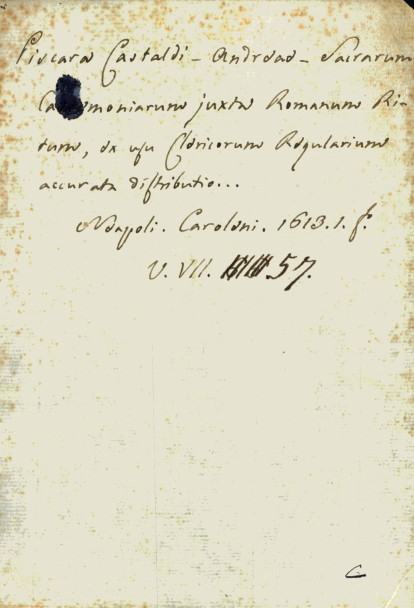 Piscara Castaldi - Andreas - Sacrarum
Caeremoniarum juxta Romanum Ri-
tum, de usu Clericorum Regularium
accurata distributio...
Napoli. Caroleni. 1613. 1. f.
V. VII. 57.
C